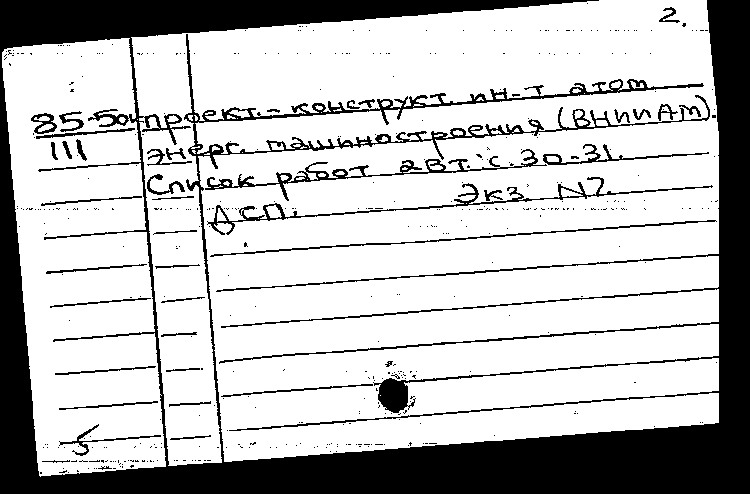 2.
85-5041 проект.-конструкт. ин-т атом.
111 энерг. машиностроения (ВНИИАМ).
Список работ авт.: с. 30-31.
ДСП. Экз. N7.
5